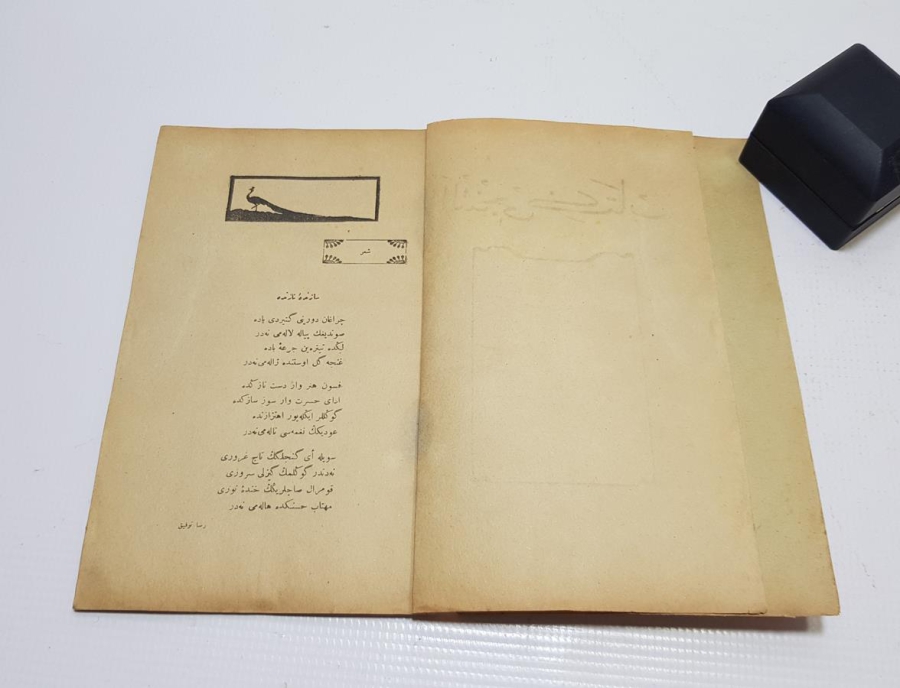 شعر
سازنده نازنده
چراغان دورینی کتیردی یاده
صوندیغك پیاله لاله‌می نه‌در
لبکده تیتره‌ین جرعهٔ باده
غنچه کل اوستنده ژاله‌می‌نه‌در
فسون هنر وار دست نازکده
ادای حسرت وار سوز سازکده
کوکللر ایکله‌یور اهتزازنده
عودیکك نغمه‌سی ناله‌می‌نه‌در
سویله أی کنجلکك تاج غروری
نه‌دندر کوکلمك کیزلی سروری
قومرال صاچلریکك خندهٔ نوری
مهتاب حسنکده هاله‌می نه‌در
رضا توفیق